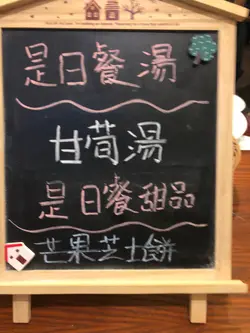 是日餐湯
甘荀湯
是日餐甜品
芒果芝士餅